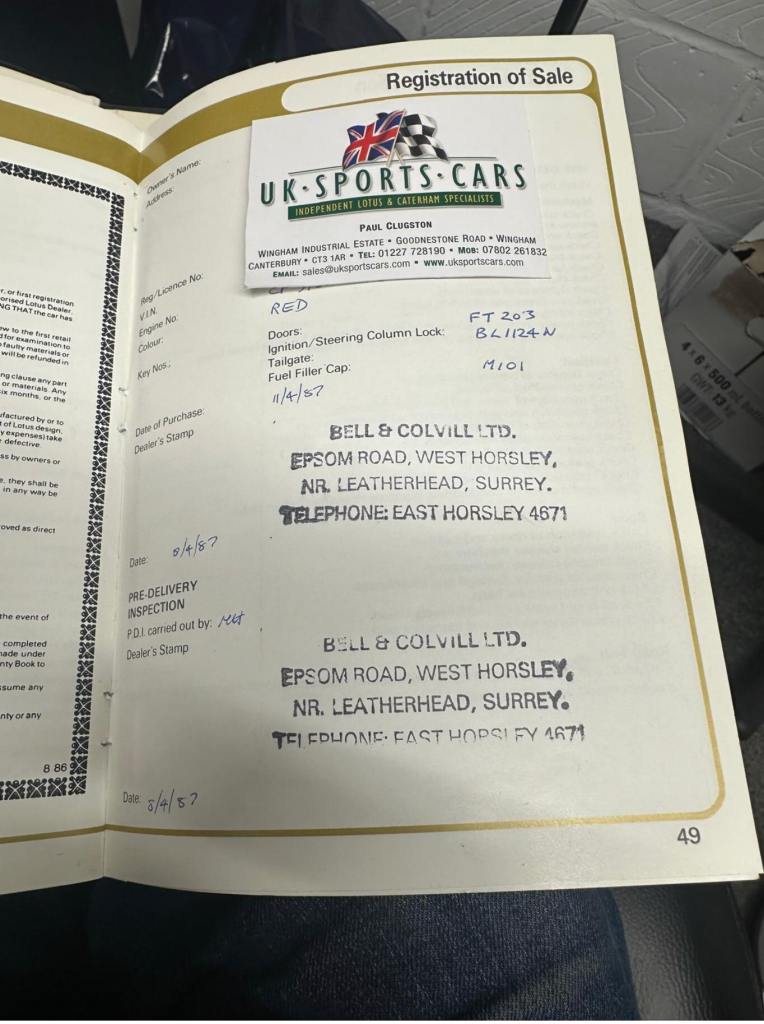 Registration of Sale
Owner's Name:
Address:
UK·SPORTS·CARS
INDEPENDENT LOTUS & CATERHAM SPECIALISTS
PAUL CLUGSTON
WINGHAM INDUSTRIAL ESTATE • GOODNESTONE ROAD • WINGHAM
CANTERBURY • CT3 1AR • TEL: 01227 728190 • MOB: 07802 261832
EMAIL: sales@uksportscars.com • www.uksportscars.com
Reg/Licence No:
V.I.N.
Engine No:
Colour: RED
Key Nos.:
Doors: FT 203
Ignition/Steering Column Lock: BL1124N
Tailgate:
Fuel Filler Cap: M101
Date of Purchase: 11/4/87
Dealer's Stamp
BELL & COLVILL LTD.
EPSOM ROAD, WEST HORSLEY,
NR. LEATHERHEAD, SURREY.
TELEPHONE: EAST HORSLEY 4671
Date: 8/4/87
PRE-DELIVERY
INSPECTION
P.D.I. carried out by:
Dealer's Stamp
BELL & COLVILL LTD.
EPSOM ROAD, WEST HORSLEY,
NR. LEATHERHEAD, SURREY.
TELEPHONE: EAST HORSLEY 4671
Date: 8/4/87
49
r, or first registration
orised Lotus Dealer.
NG THAT the car has
ew to the first retail
d for examination to
faulty materials or
will be refunded in
ng clause any part
or materials. Any
six months, or the
ufactured by or to
t of Lotus design,
y expenses) take
defective.
ss by owners or
e, they shall be
in any way be
oved as direct
the event of
completed
made under
nty Book to
ssume any
nty or any
8 86
4 x 6 x 500 ml
GWT 13